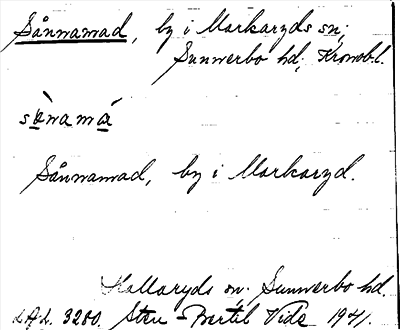 Sånnamad, by i Markaryds sn;
Sunnerbo hd; Kronob.l.
sànamá
Sånnamad, by i Markaryd.
Hallaryds sn. Sunnerbo hd.
LAL. 3280. Sten-Bertil Vide 1941.